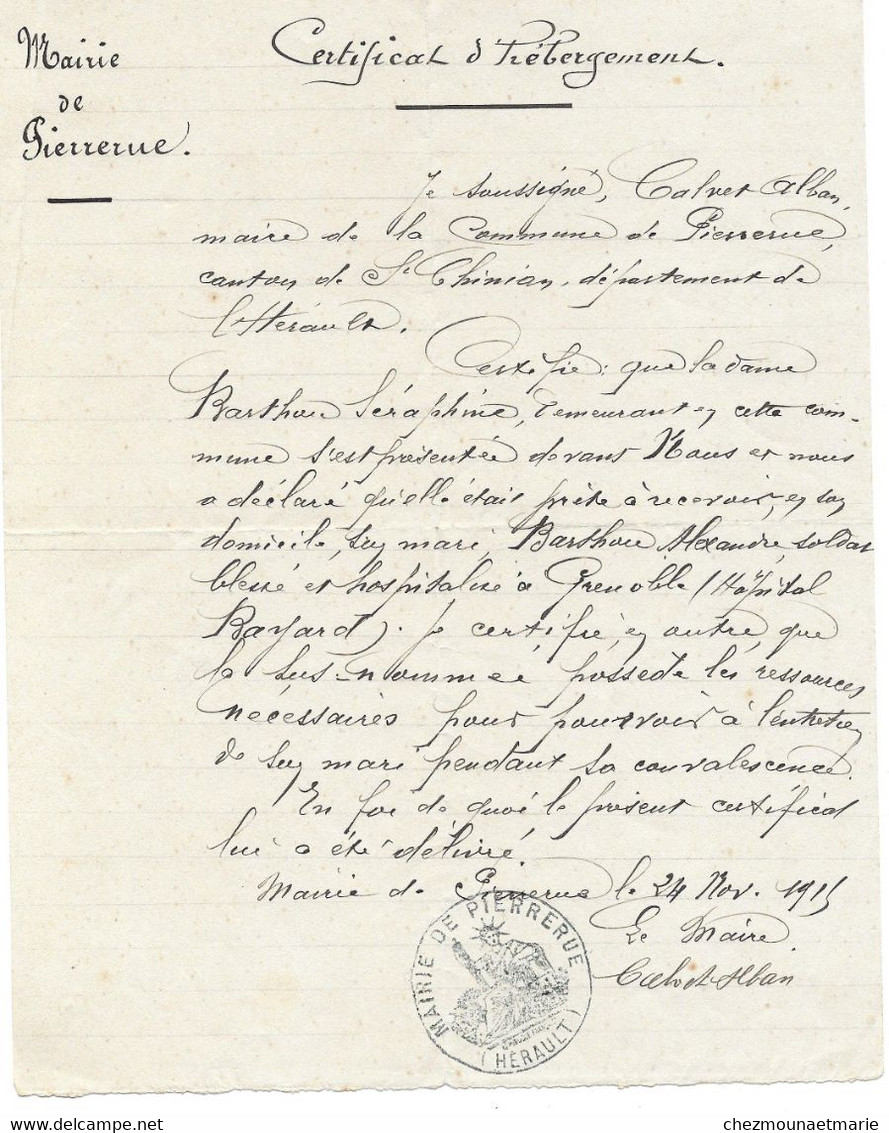 Mairie
de
Pierrerue.
Certificat d'hébergement.
Je soussigné, Calvet Alban,
maire de la Commune de Pierrerue,
canton de St Chinian, département de
l'Hérault.
Certifie: que la dame
Barthou Séraphine, demeurant en cette com-
mune s'est présentée devant Nous et nous
a déclaré qu'elle était prête à recevoir, en son
domicile, son mari, Barthou Alexandre, soldat
blessé et hospitalisé à Grenoble (Hôpital
Bayard). Je certifie, en outre, que
la sus-nommée possède les ressources
nécessaires pour pourvoir à l'entretien
de son mari pendant sa convalescence.
En foi de quoi le présent certificat
lui a été délivré.
Mairie de Pierrerue le 24 Nov. 1915
Le Maire
Calvet Alban
MAIRIE DE PIERRERUE
(HÉRAULT)
delcampe.net
chezmounaetmarie